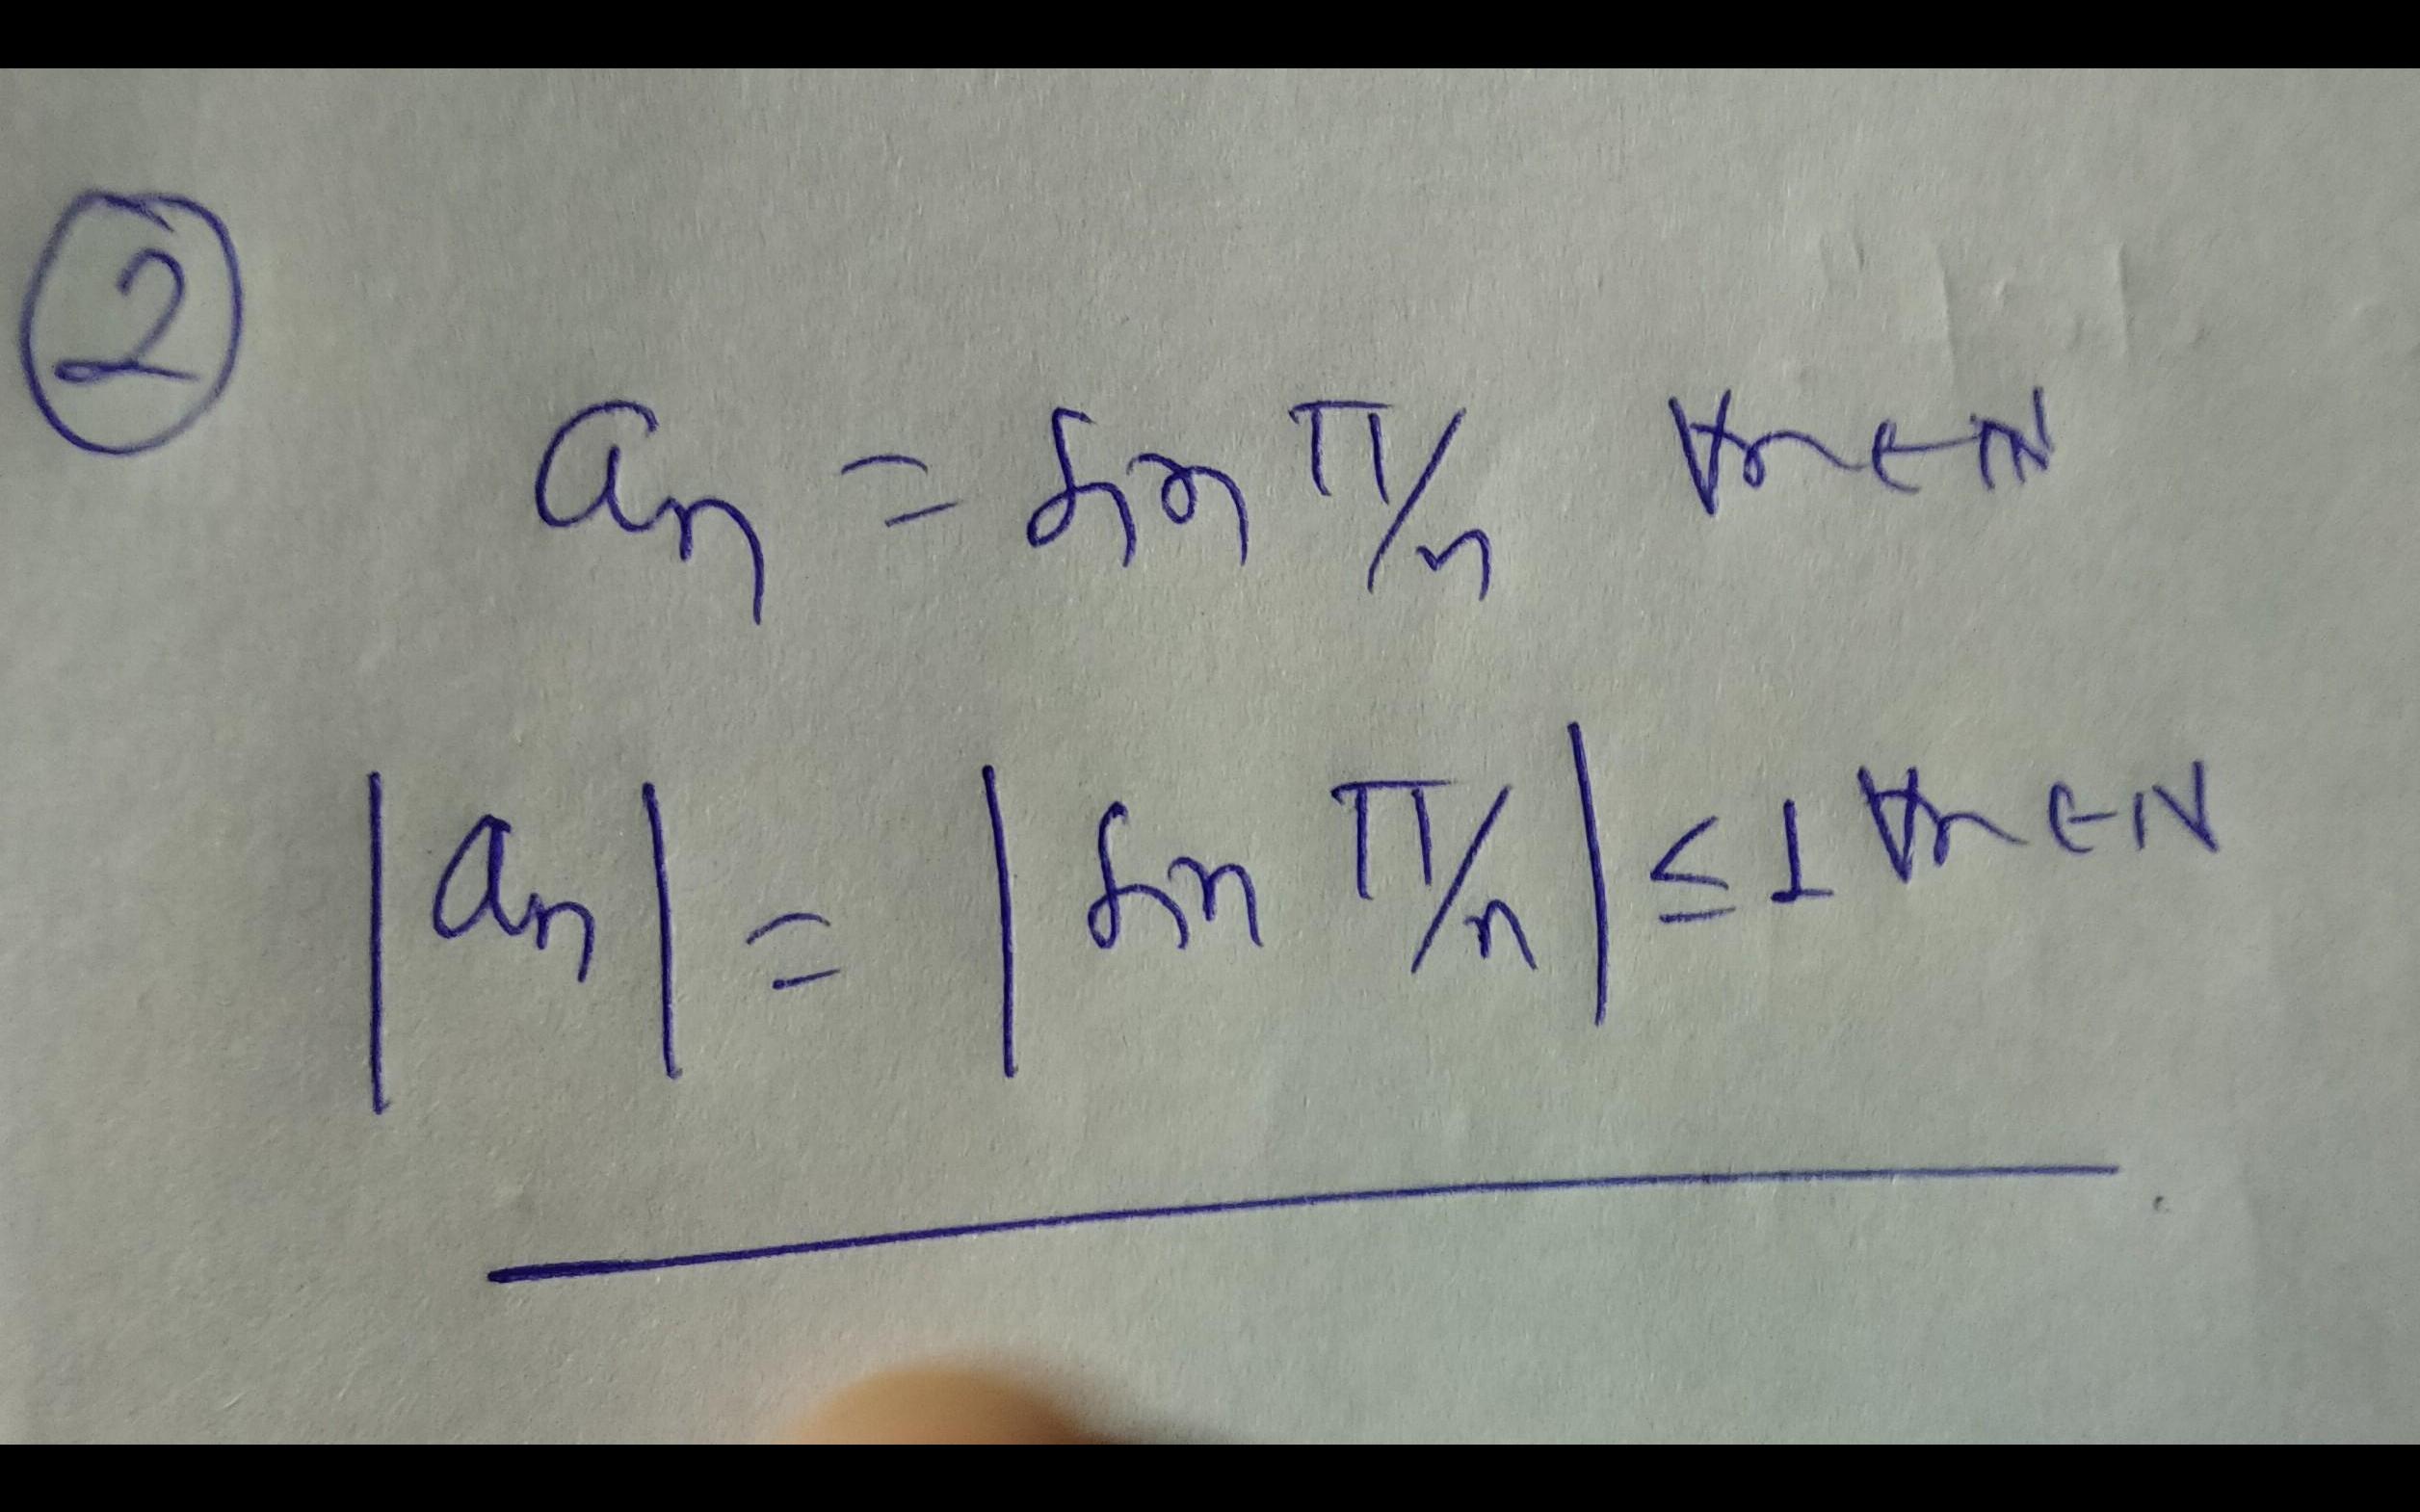 ②
aₙ = sin π/n ∀n∈ℕ
|aₙ| = |sin π/n| ≤ 1 ∀n∈N